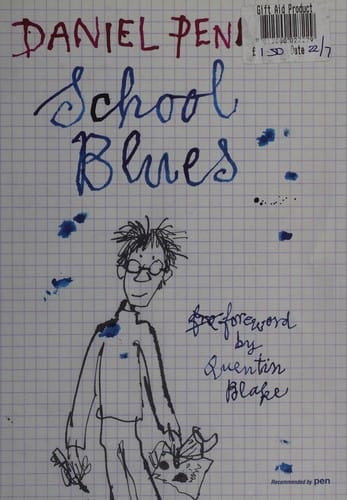 Gift Aid Product
DANIEL PEN
£1.50 Date 22/7
School
Blues
foreword
by
Quentin
Blake
Recommended by pen